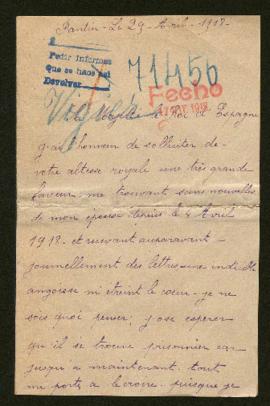 Pantin - Le 29 Avril - 1918 -
Pedir informes
Que se haos así
Devolver
71456
Fecho
Vignes
le Roi d Espagne
j ai l honneur de solliciter de
votre altesse royale une très grande
faveur. me trouvant sans nouvelles
de mon épouse depuis le 4 Avril
1918 - et recevant auparavant
journellement des lettres une indi
angoisse m étreint le cœur - je ne
sais quoi penser. j ose esperer
qu il se trouve prisonnier car
jusqu a maintenant. tout
me porte a le croire. puisque je